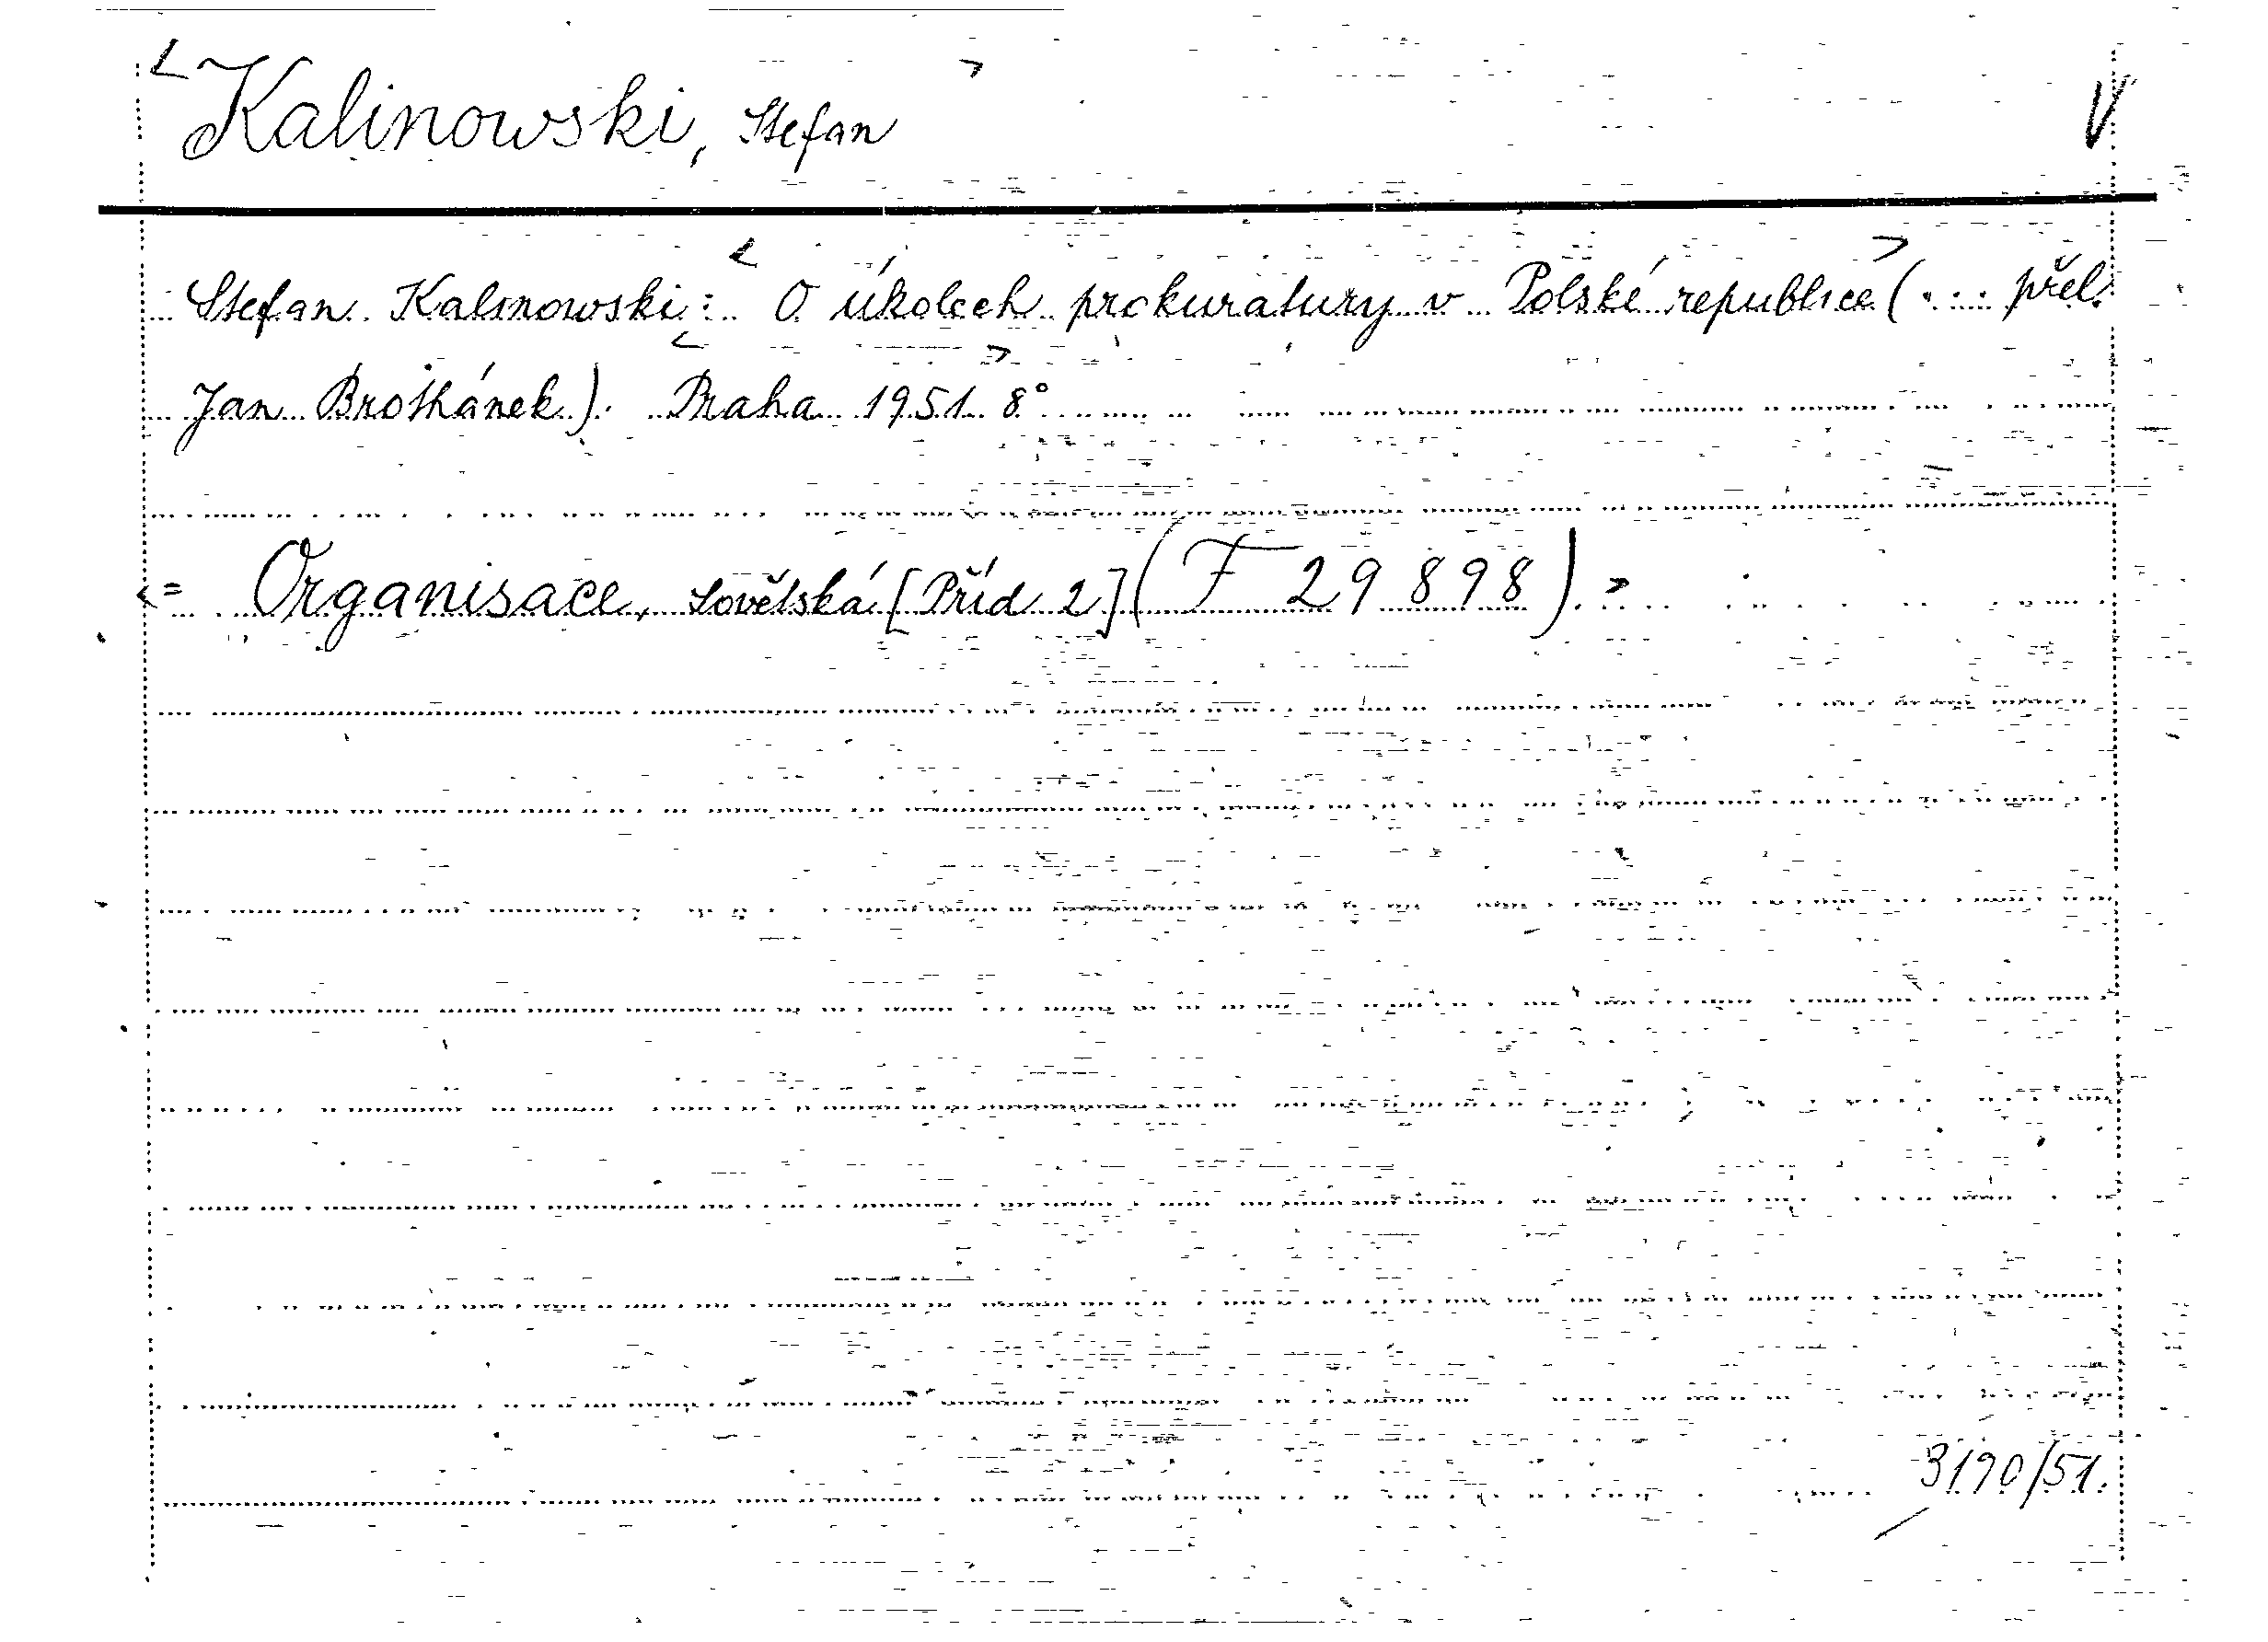 Kalinowski, Stefan
Stefan Kalinowski: O úkolech prokuratury v Polské republice (... přel.
Jan Brothánek). Praha 1951. 8°
= Organisace, sovětská [Příd 2] (F 29898).
3190/51.